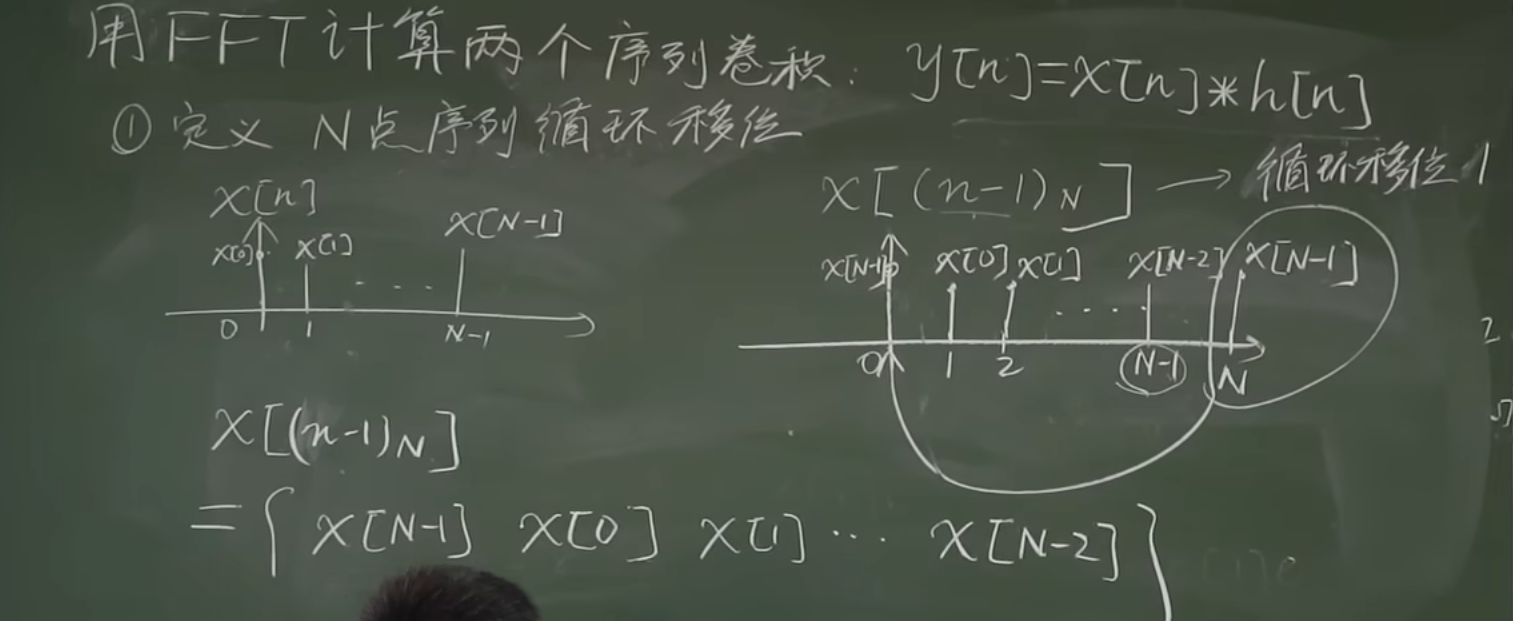 用FFT计算两个序列卷积: y[n]=x[n]*h[n]
① 定义 N点序列循环移位
x[n]
x[0] x[1] x[N-1]
0 1 .... N-1
x[(n-1)N] → 循环移位1
x[N-1] x[0] x[1] x[N-2] x[N-1]
0 1 2 .... N-1 N
x[(n-1)N]
={ x[N-1] x[0] x[1] ... x[N-2] }